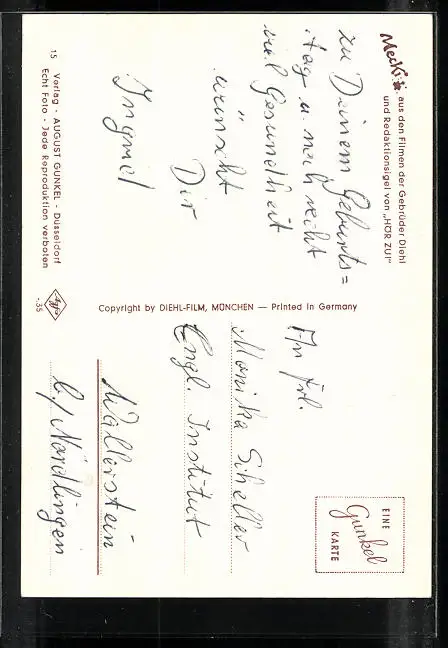 Mecki aus den Filmen der Gebrüder Diehl
und Redaktionsigel von „HÖR ZU!"
zu Deinem Geburts=
tag u. noch recht
viel Gesundheit
wünscht
Dir
Ingrid
15 Verlag - AUGUST GUNKEL - Düsseldorf
Echt Foto - Jede Reproduktion verboten
Copyright by DIEHL-FILM, MÜNCHEN — Printed in Germany
Agfa
-.35
EINE
Gunkel
KARTE
An Frl.
Monika Scheller
Engl. Institut
Wallerstein
b/Nördlingen